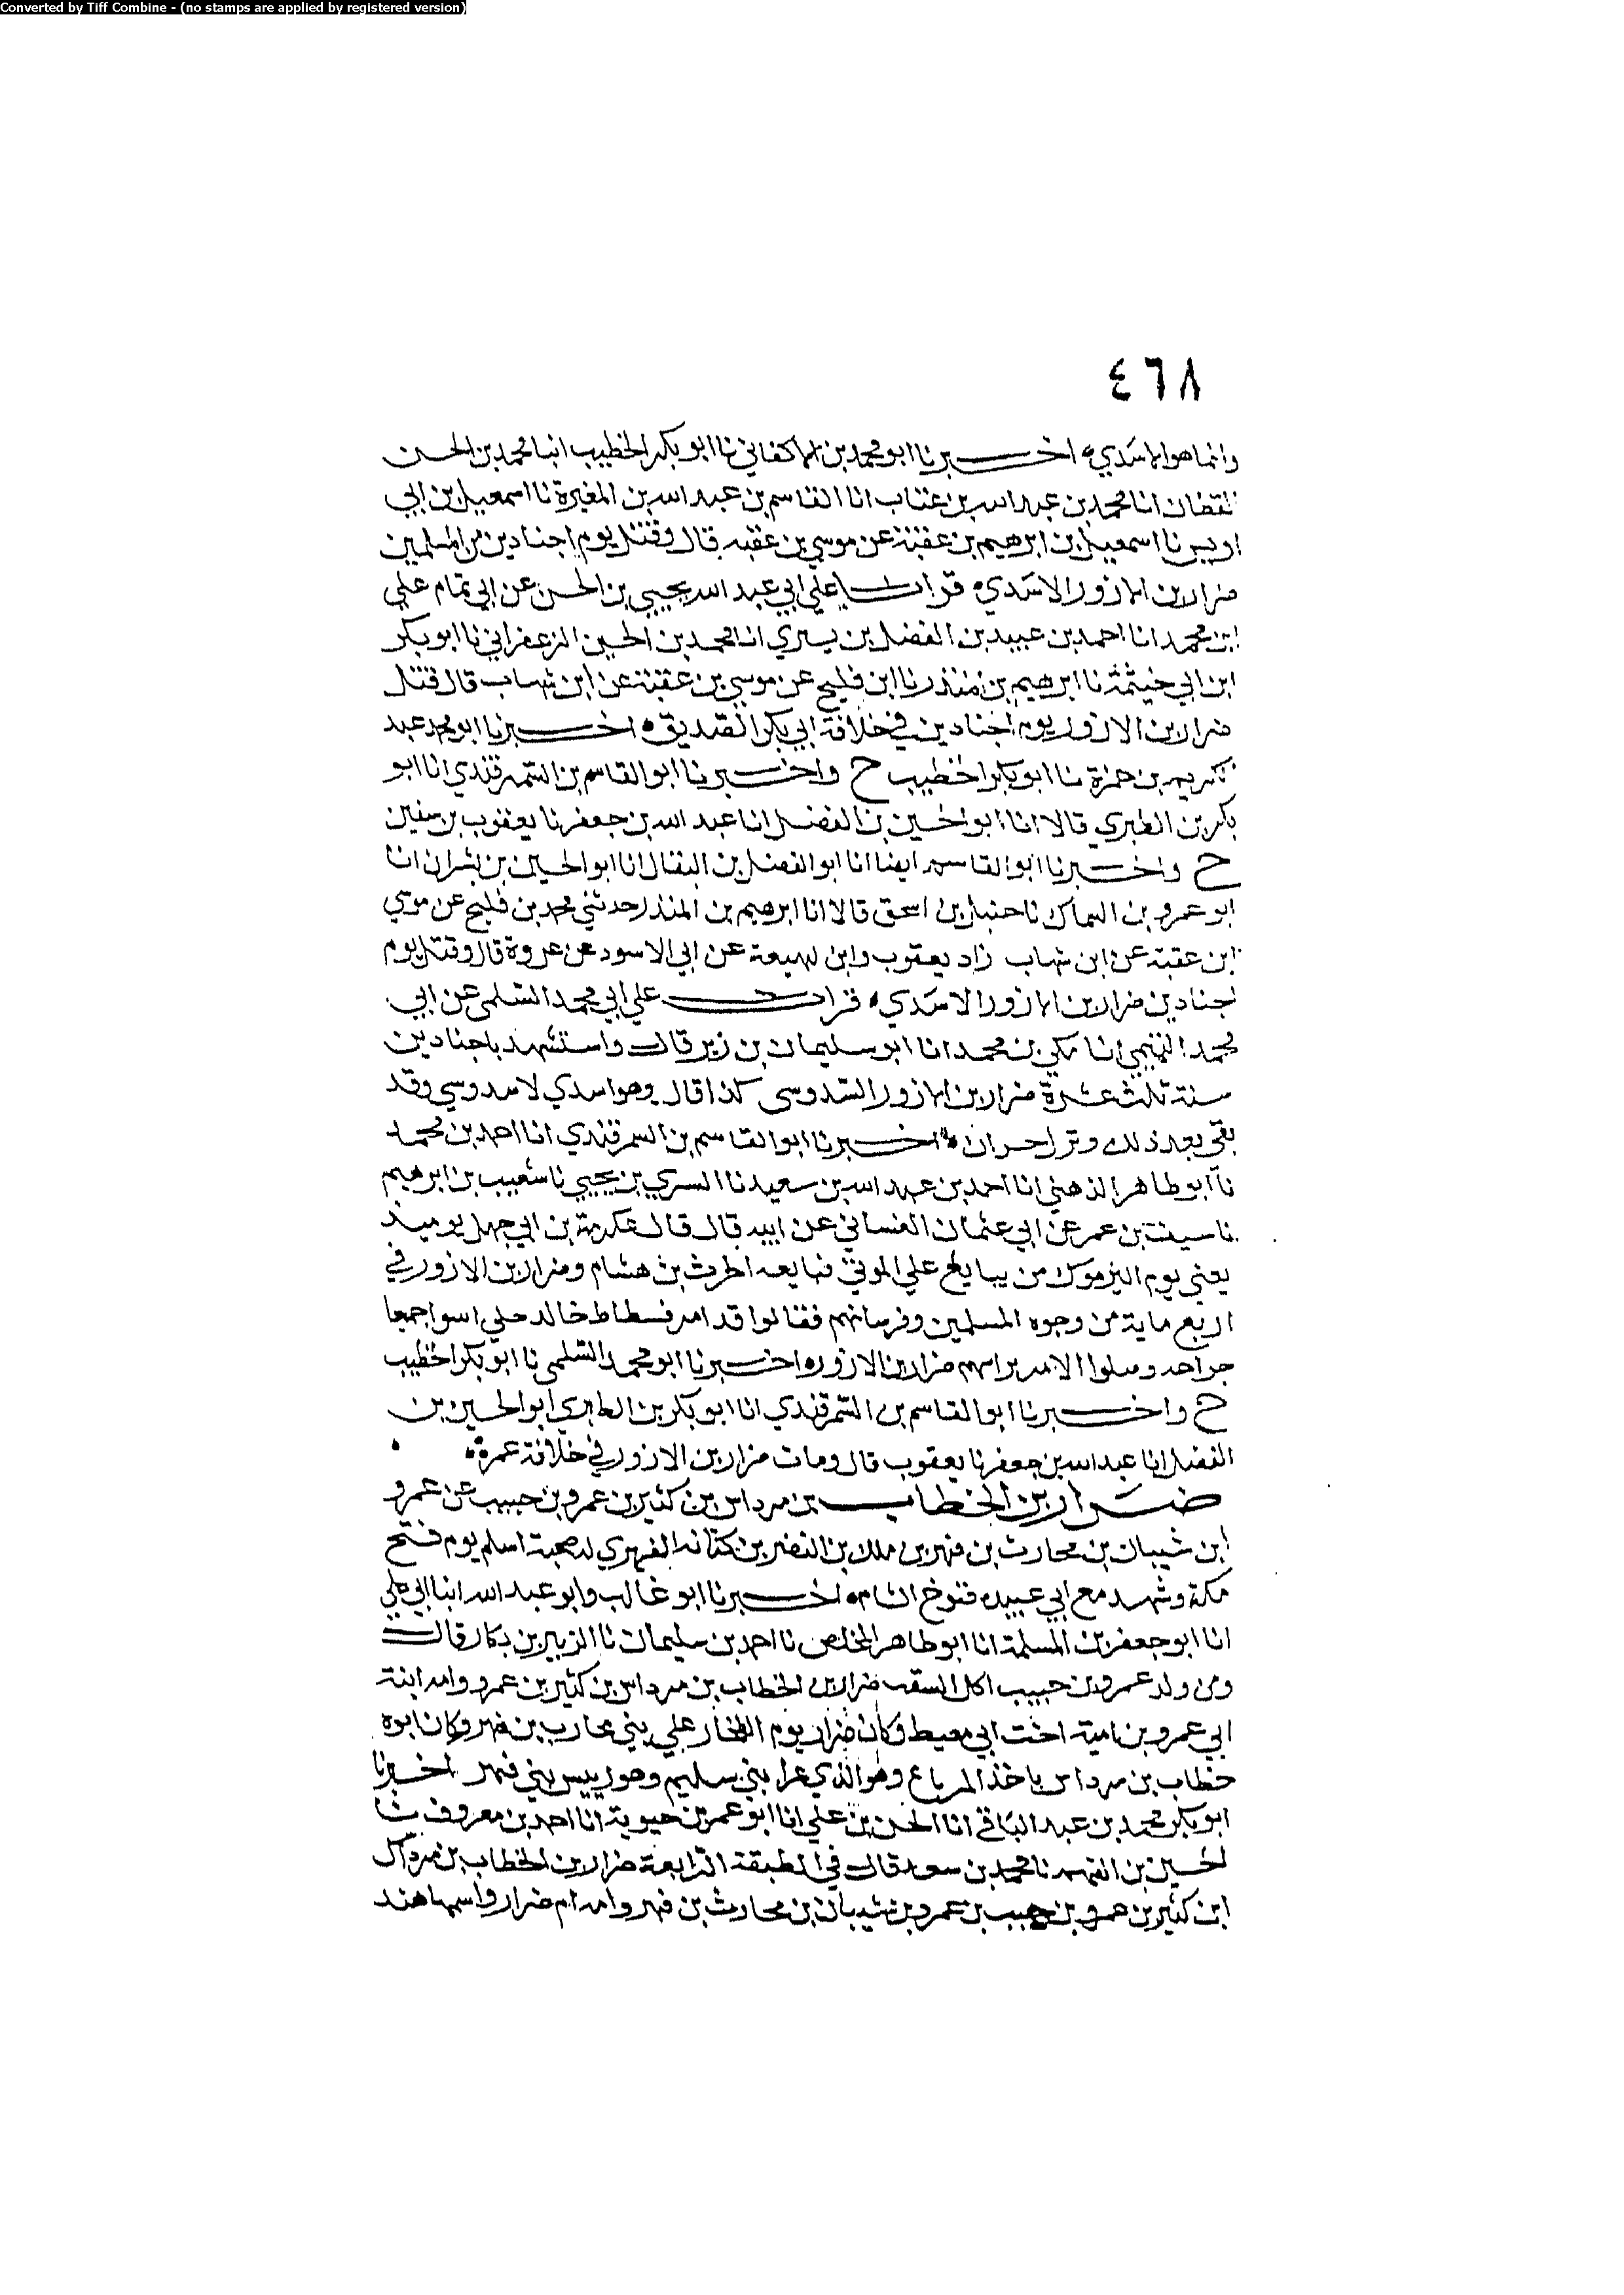 Converted by Tiff Combine - (no stamps are applied by registered version)
٤٦٨
وانما هو الاسدي اخبرنا ابو محمد بن الاكفاني نا ابو بكر الخطيب انبا محمد بن الحسن
القطان انا محمد بن عبد الله بن عتاب انا القاسم بن عبد الله بن المغيرة نا اسمعيل بن ابي
اويس نا اسمعيل بن ابرهيم بن عقبة عن موسي بن عقبه قال وقتل يوم اجنادين من المسلمين
ضرار بن الازور الاسدي قرات علي ابي عبد الله يحيي بن الحسن عن ابي تمام علي
ابن محمد انا احمد بن عبيد بن الفضل بن بيري انا محمد بن الحسين الزعفراني نا ابو بكر
ابن ابي خيثمة نا ابرهيم بن منذر نا ابن فليح عن موسي بن عقبة عن ابن شهاب قال قتل
ضرار بن الازور يوم اجنادين في خلافة ابي بكر الصديق اخبرنا ابو محمد عبد
الكريم بن حمزة نا ابو بكر الخطيب ح واخبرنا ابو القاسم بن السمرقندي انا ابو
بكر بن الطبري قالا انا ابو الحسين بن الفضل انا عبد الله بن جعفر نا يعقوب بن سفين
ح واخبرنا ابو القاسم ايضا انا ابو الفضل بن البقال انا ابو الحسين بن بشران انا
ابو عمرو بن السماك نا حنبل بن اسحق قالا انا ابرهيم بن المنذر حدثني محمد بن فليح عن موسي
ابن عقبة عن ابن شهاب زاد يعقوب وابن لهيعة عن ابي الاسود عن عروة قال وقتل يوم
اجنادين ضرار بن الازور الاسدي قرات علي ابي محمد السلمي عن ابي
محمد التميمي انا مكي بن محمد انا ابو سليمان بن زبر قال واستشهد باجنادين
سنة ثلث عشرة ضرار بن الازور السدوسي كذا قال وهو اسدي لا سدوسي وقد
بقي بعد ذلك ونزل حران اخبرنا ابو القاسم بن السمرقندي انا احمد بن محمد
نا ابو طاهر الذهبي انا احمد بن عبد الله بن سعيد نا السري بن يحيي نا شعيب بن ابرهيم
نا سيف بن عمر عن ابي عثمان الغساني عن ابيه قال قال عكرمة بن ابي جهل يوميذ
يعني يوم اليرموك من يبايع علي الموت فبايعه الحرث بن هشام وضرار بن الازور في
اربع ماية من وجوه المسلمين وفرسانهم فقالوا قدام فسطاط خالد حتي اسوا جميعا
جراحه وصلوا الا من برا منهم ضرار بن الازور اخبرنا ابو محمد السلمي نا ابو بكر الخطيب
ح واخبرنا ابو القاسم بن السمرقندي انا ابو بكر بن الطبري ابو الحسين بن
الفضل انا عبد الله بن جعفر نا يعقوب قال ومات ضرار بن الازور في خلافة عمر
ضرار بن الخطاب بن مرداس بن كثير بن عمرو بن حبيب عن عمرو
ابن شيبان بن محارب بن فهر بن ملك بن النضر بن كنانه الفهري له صحبة اسلم يوم فتح
مكة وشهد مع ابي عبيده فتوح الشام اخبرنا ابو غالب وابو عبد الله ابنا ابي علي
انا ابو جعفر بن المسلمة انا ابو طاهر المخلص نا احمد بن سليمان نا الزبير بن بكار قال
ومن ولد عمرو بن حبيب اكل السقب ضرار بن الخطاب بن مرداس بن كثير بن عمرو وامه ابنة
ابي عمرو بن امية اخت ابي معيط وكان ضرار يوم الفجار علي بني محارب بن فهر وكان ابوه
خطاب بن مرداس ياخذ المرباع وهو الذي غزا بني سليم وهو رييس بني فهر اخبرنا
ابو بكر محمد بن عبد الباقي انا الحسن بن علي انا ابو عمر بن حيوية انا احمد بن معروف نا
الحسين بن الفهم نا محمد بن سعد قال في الطبقة الرابعة ضرار بن الخطاب بن مرداس
ابن كثير بن عمرو بن حبيب بن عمرو بن شيبان بن محارب بن فهر وامه ام ضرار واسمها هند